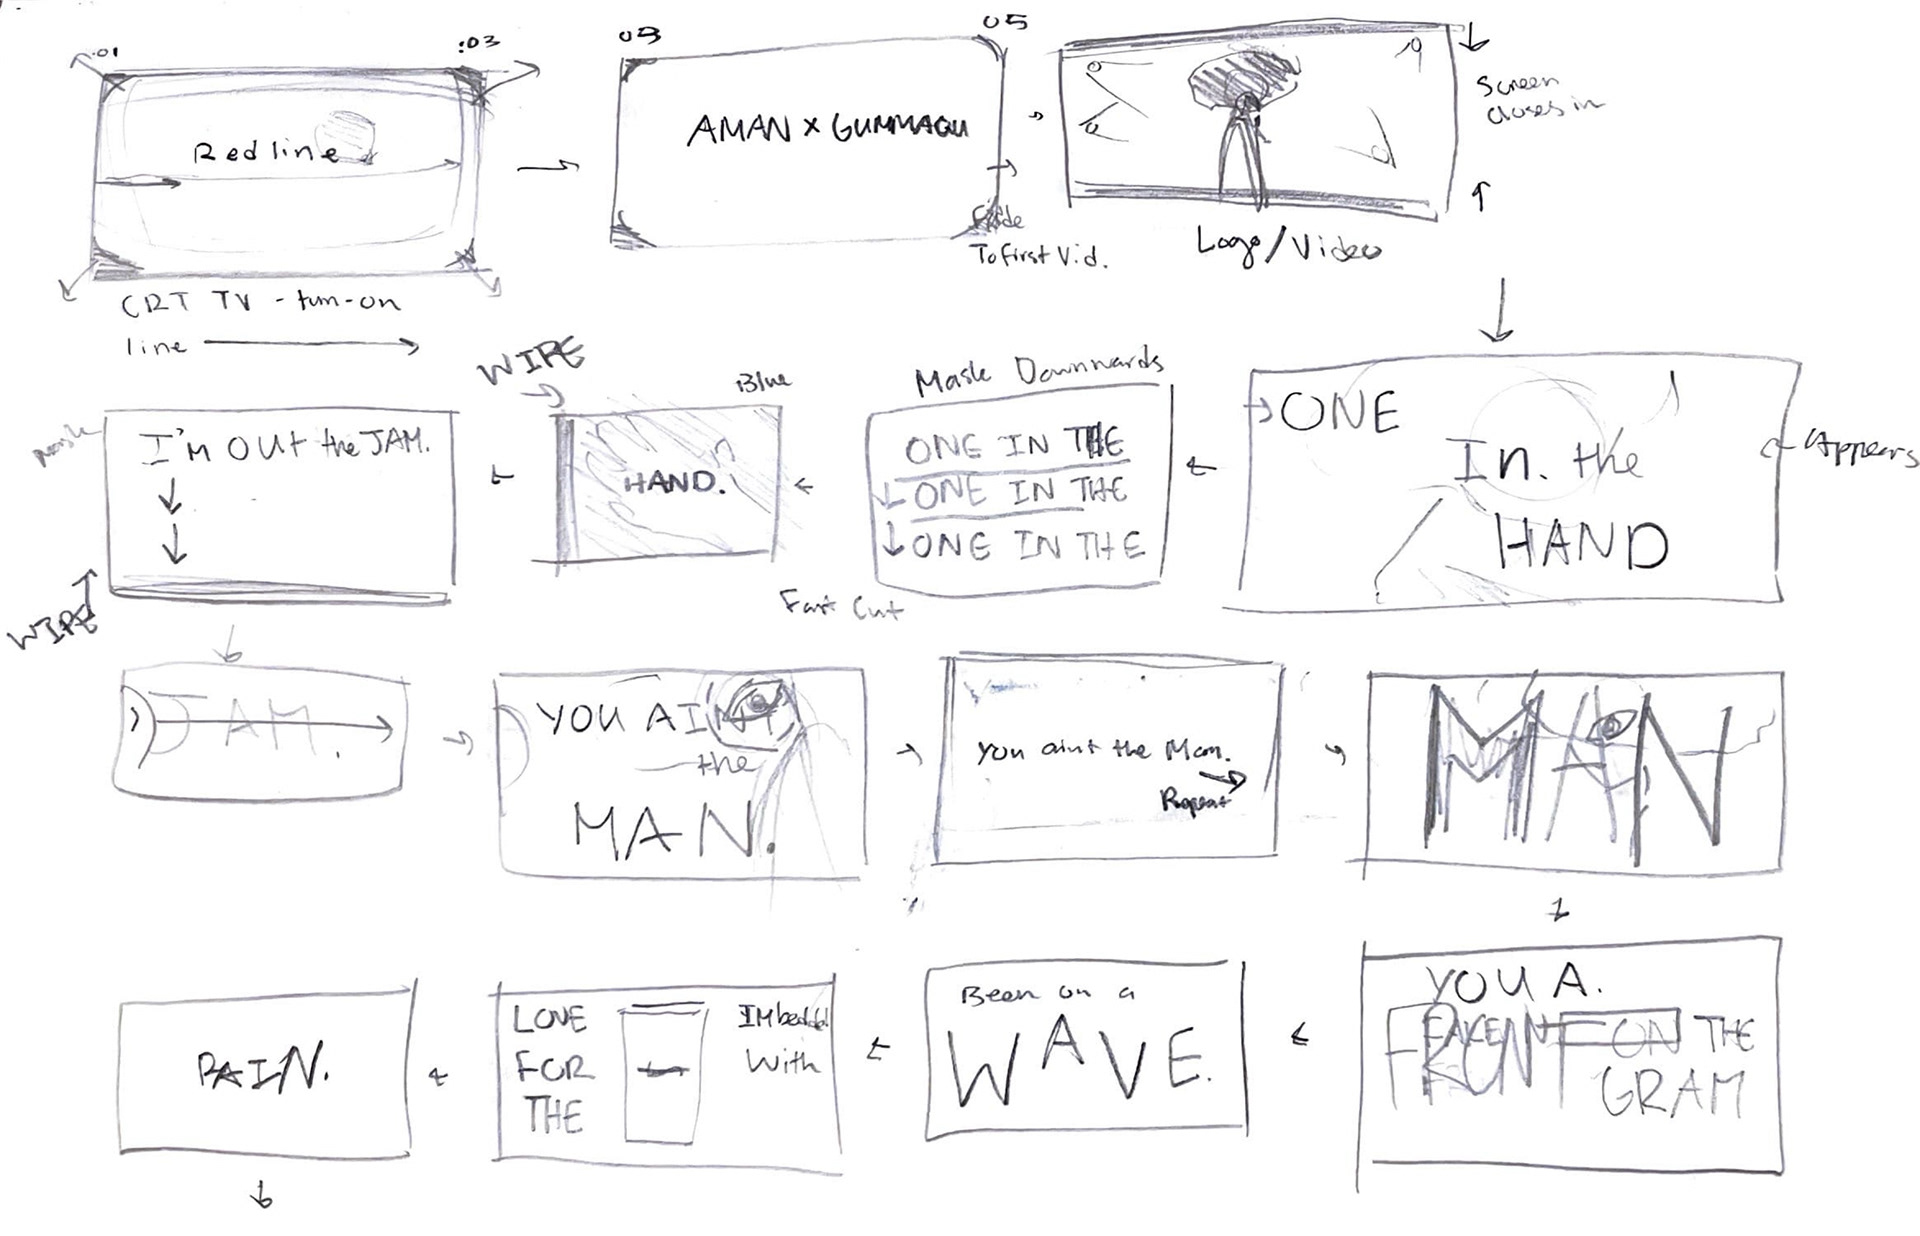 :01
:03
Redline
CRT TV - turn-on
line
03
05
AMAN x GUMMAGU
Fade
To first Vid.
Screen
closes in
Logo/Video
ONE
In. the
HAND
Appears
Mask Downwards
ONE IN THE
ONE IN THE
ONE IN THE
Fast Cut
WIPE
Blue
HAND.
mask
I'm OUt the JAM.
WIPE
JAM.
YOU AINT
the
MAN.
You aint the Man.
Repeat
MAN
YOU A.
FAKE
FRONT ON THE
GRAM
Been on a
WAVE.
LOVE
FOR
THE
IMbedded
With
PAIN.